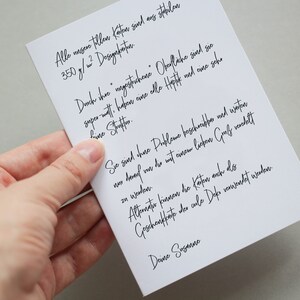 Alle unsere tollen Karten sind aus stabilem
350 g/m² Designkarton.
Durch ihre "ungestrichene" Oberfläche sind sie
super matt, haben eine edle Haptik und eine sehr
feine Struktur.
Sie sind ohne Probleme beschreibbar und warten
nur darauf von dir mit einem lieben Gruß versehen
zu werden.
Alternativ können die Karten auch als
Geschenkkarte oder coole Deko verwendet werden.
Deine Susanne